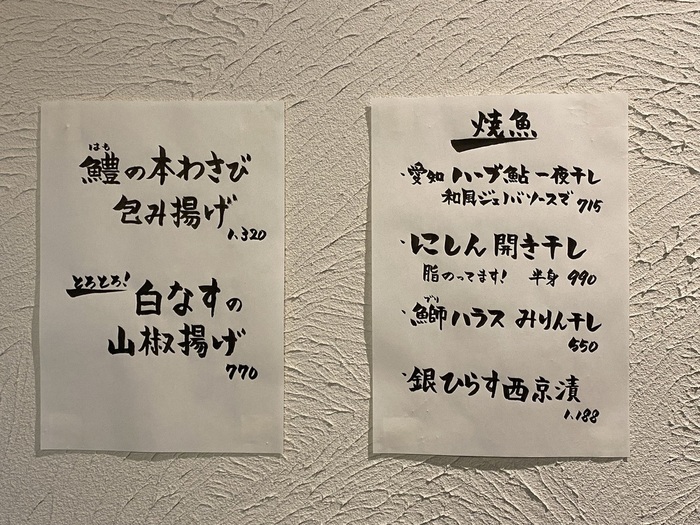 はも
鱧の本わさび
包み揚げ
1,320
とろとろ!
白なすの
山椒揚げ
770
焼魚
・愛知 ハーブ鮎 一夜干し
和風ジェノバソースで 715
・にしん 開き干し
脂のってます! 半身 990
ぶり
・鰤ハラス みりん干し
550
・銀ひらす西京漬
1,188